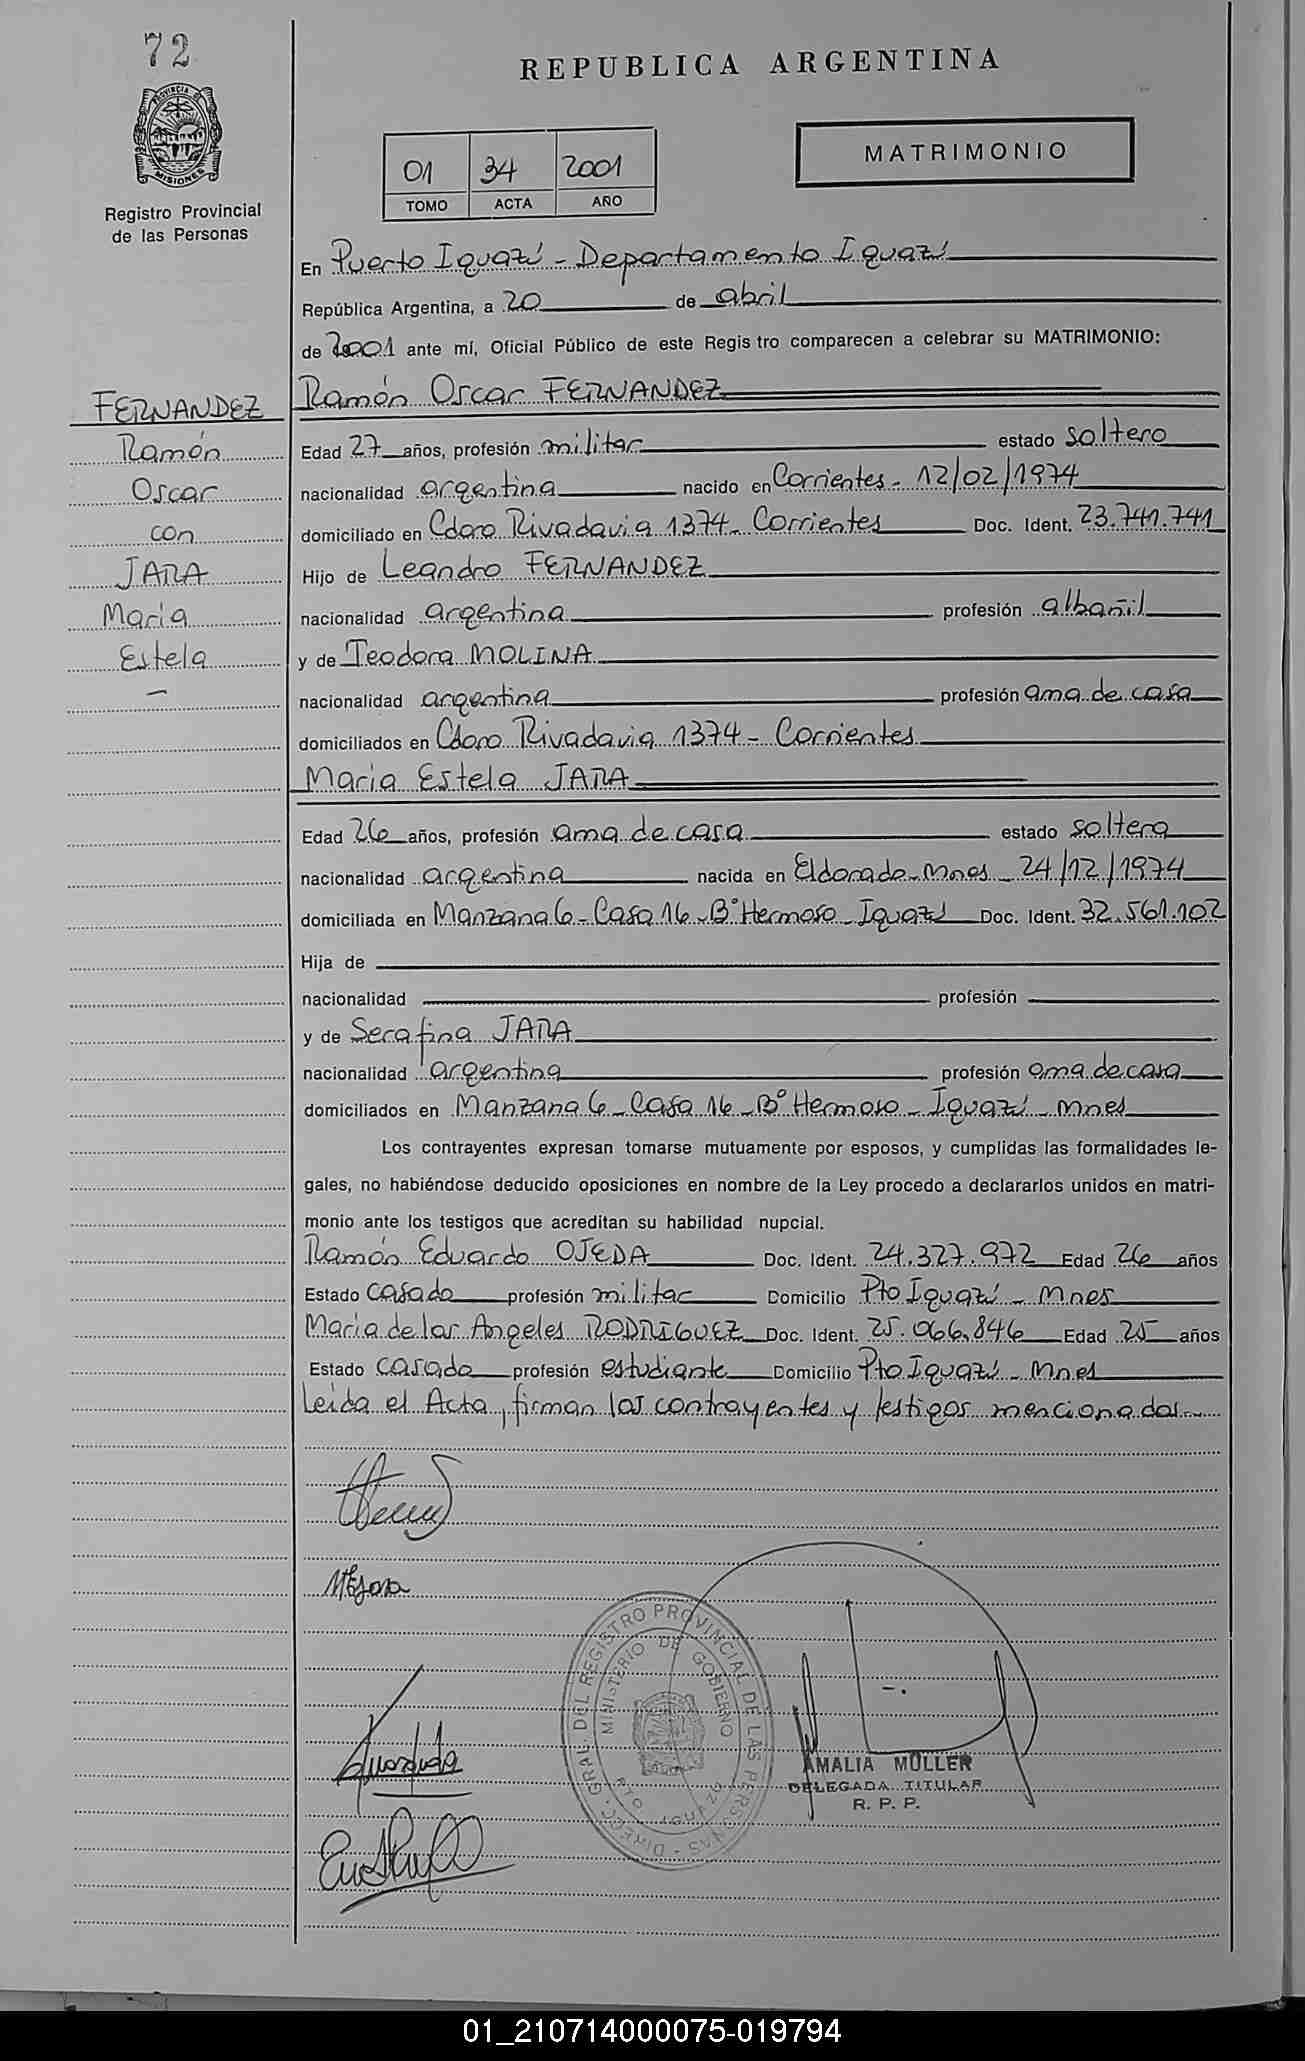 72
PROVINCIA DE
MISIONES
Registro Provincial
de las Personas
REPUBLICA ARGENTINA
MATRIMONIO
01 34 2001
TOMO ACTA AÑO
En Puerto Iguazú - Departamento Iguazú
República Argentina, a 20 de abril
de 2001 ante mí, Oficial Público de este Registro comparecen a celebrar su MATRIMONIO:
FERNANDEZ
Ramón
Oscar
con
JARA
Maria
Estela
Ramón Oscar FERNANDEZ
Edad 27 años, profesión militar estado soltero
nacionalidad argentina nacido en Corrientes - 12/02/1974
domiciliado en Cdoro Rivadavia 1374 - Corrientes Doc. Ident. 23.741.741
Hijo de Leandro FERNANDEZ
nacionalidad argentina profesión albañil
y de Teodora MOLINA
nacionalidad argentina profesión ama de casa
domiciliados en Cdoro Rivadavia 1374 - Corrientes
Maria Estela JARA
Edad 26 años, profesión ama de casa estado soltera
nacionalidad argentina nacida en Eldorado - Mnes - 24/12/1974
domiciliada en Manzana 6 - Casa 16 - Bº Hermoso - Iguazú Doc. Ident. 32.561.102
Hija de
nacionalidad profesión
y de Serafina JARA
nacionalidad argentina profesión ama de casa
domiciliados en Manzana 6 - Casa 16 - Bº Hermoso - Iguazú - Mnes
Los contrayentes expresan tomarse mutuamente por esposos, y cumplidas las formalidades le-
gales, no habiéndose deducido oposiciones en nombre de la Ley procedo a declararlos unidos en matri-
monio ante los testigos que acreditan su habilidad nupcial.
Ramón Eduardo OJEDA Doc. Ident. 24.327.972 Edad 26 años
Estado casado profesión militar Domicilio Pto Iguazú - Mnes
Maria de los Angeles RODRIGUEZ Doc. Ident. 25.066.846 Edad 25 años
Estado casada profesión estudiante Domicilio Pto Iguazú - Mnes
Leida el Acta, firman los contrayentes y testigos mencionados
DIREC. GRAL. DEL REGISTRO PROVINCIAL DE LAS PERSONAS
MINISTERIO DE GOBIERNO
AMALIA MÜLLER
DELEGADA TITULAR
R. P. P.
01_210714000075-019794